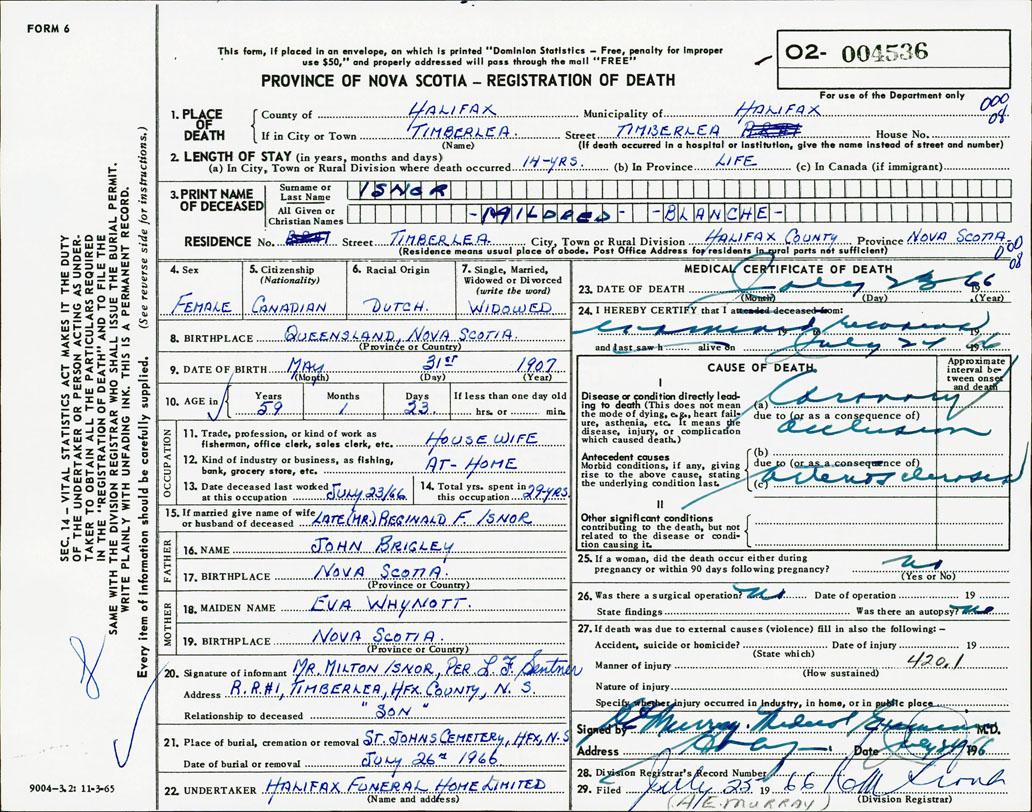 FORM 6
This form, if placed in an envelope, on which is printed "Dominion Statistics – Free, penalty for improper
use $50," and properly addressed will pass through the mail "FREE"
O2- 004536
PROVINCE OF NOVA SCOTIA – REGISTRATION OF DEATH
For use of the Department only
000
08
1. PLACE OF DEATH
County of HALIFAX Municipality of HALIFAX
If in City or Town TIMBERLEA. Street TIMBERLEA House No.
(Name) (If death occurred in a hospital or institution, give the name instead of street and number)
2. LENGTH OF STAY (in years, months and days)
(a) In City, Town or Rural Division where death occurred 14-YRS. (b) In Province LIFE (c) In Canada (if immigrant)
3. PRINT NAME OF DECEASED
Surname or Last Name ISNOR
All Given or Christian Names -MILDRED- -BLANCHE-
RESIDENCE No. Street TIMBERLEA. City, Town or Rural Division HALIFAX COUNTY Province NOVA SCOTIA.
(Residence means usual place of abode. Post Office Address for residents in rural parts not sufficient)
000
08
4. Sex
FEMALE
5. Citizenship
(Nationality)
CANADIAN
6. Racial Origin
DUTCH.
7. Single, Married,
Widowed or Divorced
(write the word)
WIDOWED
8. BIRTHPLACE QUEENSLAND, NOVA SCOTIA.
(Province or Country)
9. DATE OF BIRTH MAY 31ST 1907
(Month) (Day) (Year)
10. AGE in
Years Months Days If less than one day old
59 1 23. hrs. or min.
OCCUPATION
11. Trade, profession, or kind of work as
fisherman, office clerk, sales clerk, etc. HOUSEWIFE
12. Kind of industry or business, as fishing,
bank, grocery store, etc. AT-HOME
13. Date deceased last worked
at this occupation JULY 23/66
14. Total yrs. spent in
this occupation 29-YRS.
15. If married give name of wife
or husband of deceased LATE (MR.) REGINALD F. ISNOR
FATHER
16. NAME JOHN BRIGLEY
17. BIRTHPLACE NOVA SCOTIA.
(Province or Country)
MOTHER
18. MAIDEN NAME EVA WHYNOTT.
19. BIRTHPLACE NOVA SCOTIA.
(Province or Country)
20. Signature of informant MR. MILTON ISNOR, PER L.F. Sentner
Address R.R.#1, TIMBERLEA, HFX. COUNTY, N.S.
Relationship to deceased "SON"
21. Place of burial, cremation or removal ST. JOHNS CEMETERY, HFX, N.S
Date of burial or removal JULY 26TH 1966
22. UNDERTAKER HALIFAX FUNERAL HOME LIMITED
(Name and address)
MEDICAL CERTIFICATE OF DEATH
23. DATE OF DEATH July 23 1966
(Month) (Day) (Year)
24. I HEREBY CERTIFY that I attended deceased from:
examined 19 to deceased 19
and last saw h alive on July 24 1966
CAUSE OF DEATH
Approximate
interval be-
tween onset
and death
I
Disease or condition directly lead-
ing to death (This does not mean
the mode of dying, e.g., heart fail-
ure, asthenia, etc. It means the
disease, injury, or complication
which caused death.)
(a) Coronary
due to (or as a consequence of)
occlusion
Antecedent causes
Morbid conditions, if any, giving
rise to the above cause, stating
the underlying condition last.
(b)
due to (or as a consequence of)
(c) arteriosclerosis
II
Other significant conditions
contributing to the death, but not
related to the disease or condi-
tion causing it.
25. If a woman, did the death occur either during
pregnancy or within 90 days following pregnancy? no
(Yes or No)
26. Was there a surgical operation? no Date of operation 19
State findings Was there an autopsy? no
27. If death was due to external causes (violence) fill in also the following: –
Accident, suicide or homicide? Date of injury 19
(State which)
Manner of injury 420.1
(How sustained)
Nature of injury
Specify whether injury occurred in industry, in home, or in public place
Signed by Murray. Medical Examiner M.D.
Address Date July 24 1966
28. Division Registrar's Record Number
29. Filed July 25 19 66
(A.E. MURRAY) (Division Registrar)
SEC. 14 – VITAL STATISTICS ACT MAKES IT THE DUTY
OF THE UNDERTAKER OR PERSON ACTING AS UNDER-
TAKER TO OBTAIN ALL THE PARTICULARS REQUIRED
IN THE "REGISTRATION OF DEATH" AND TO FILE THE
SAME WITH THE DIVISION REGISTRAR WHO SHALL ISSUE THE BURIAL PERMIT.
WRITE PLAINLY WITH UNFADING INK. THIS IS A PERMANENT RECORD.
Every item of information should be carefully supplied. (See reverse side for instructions.)
9004–3.2: 11-3-65